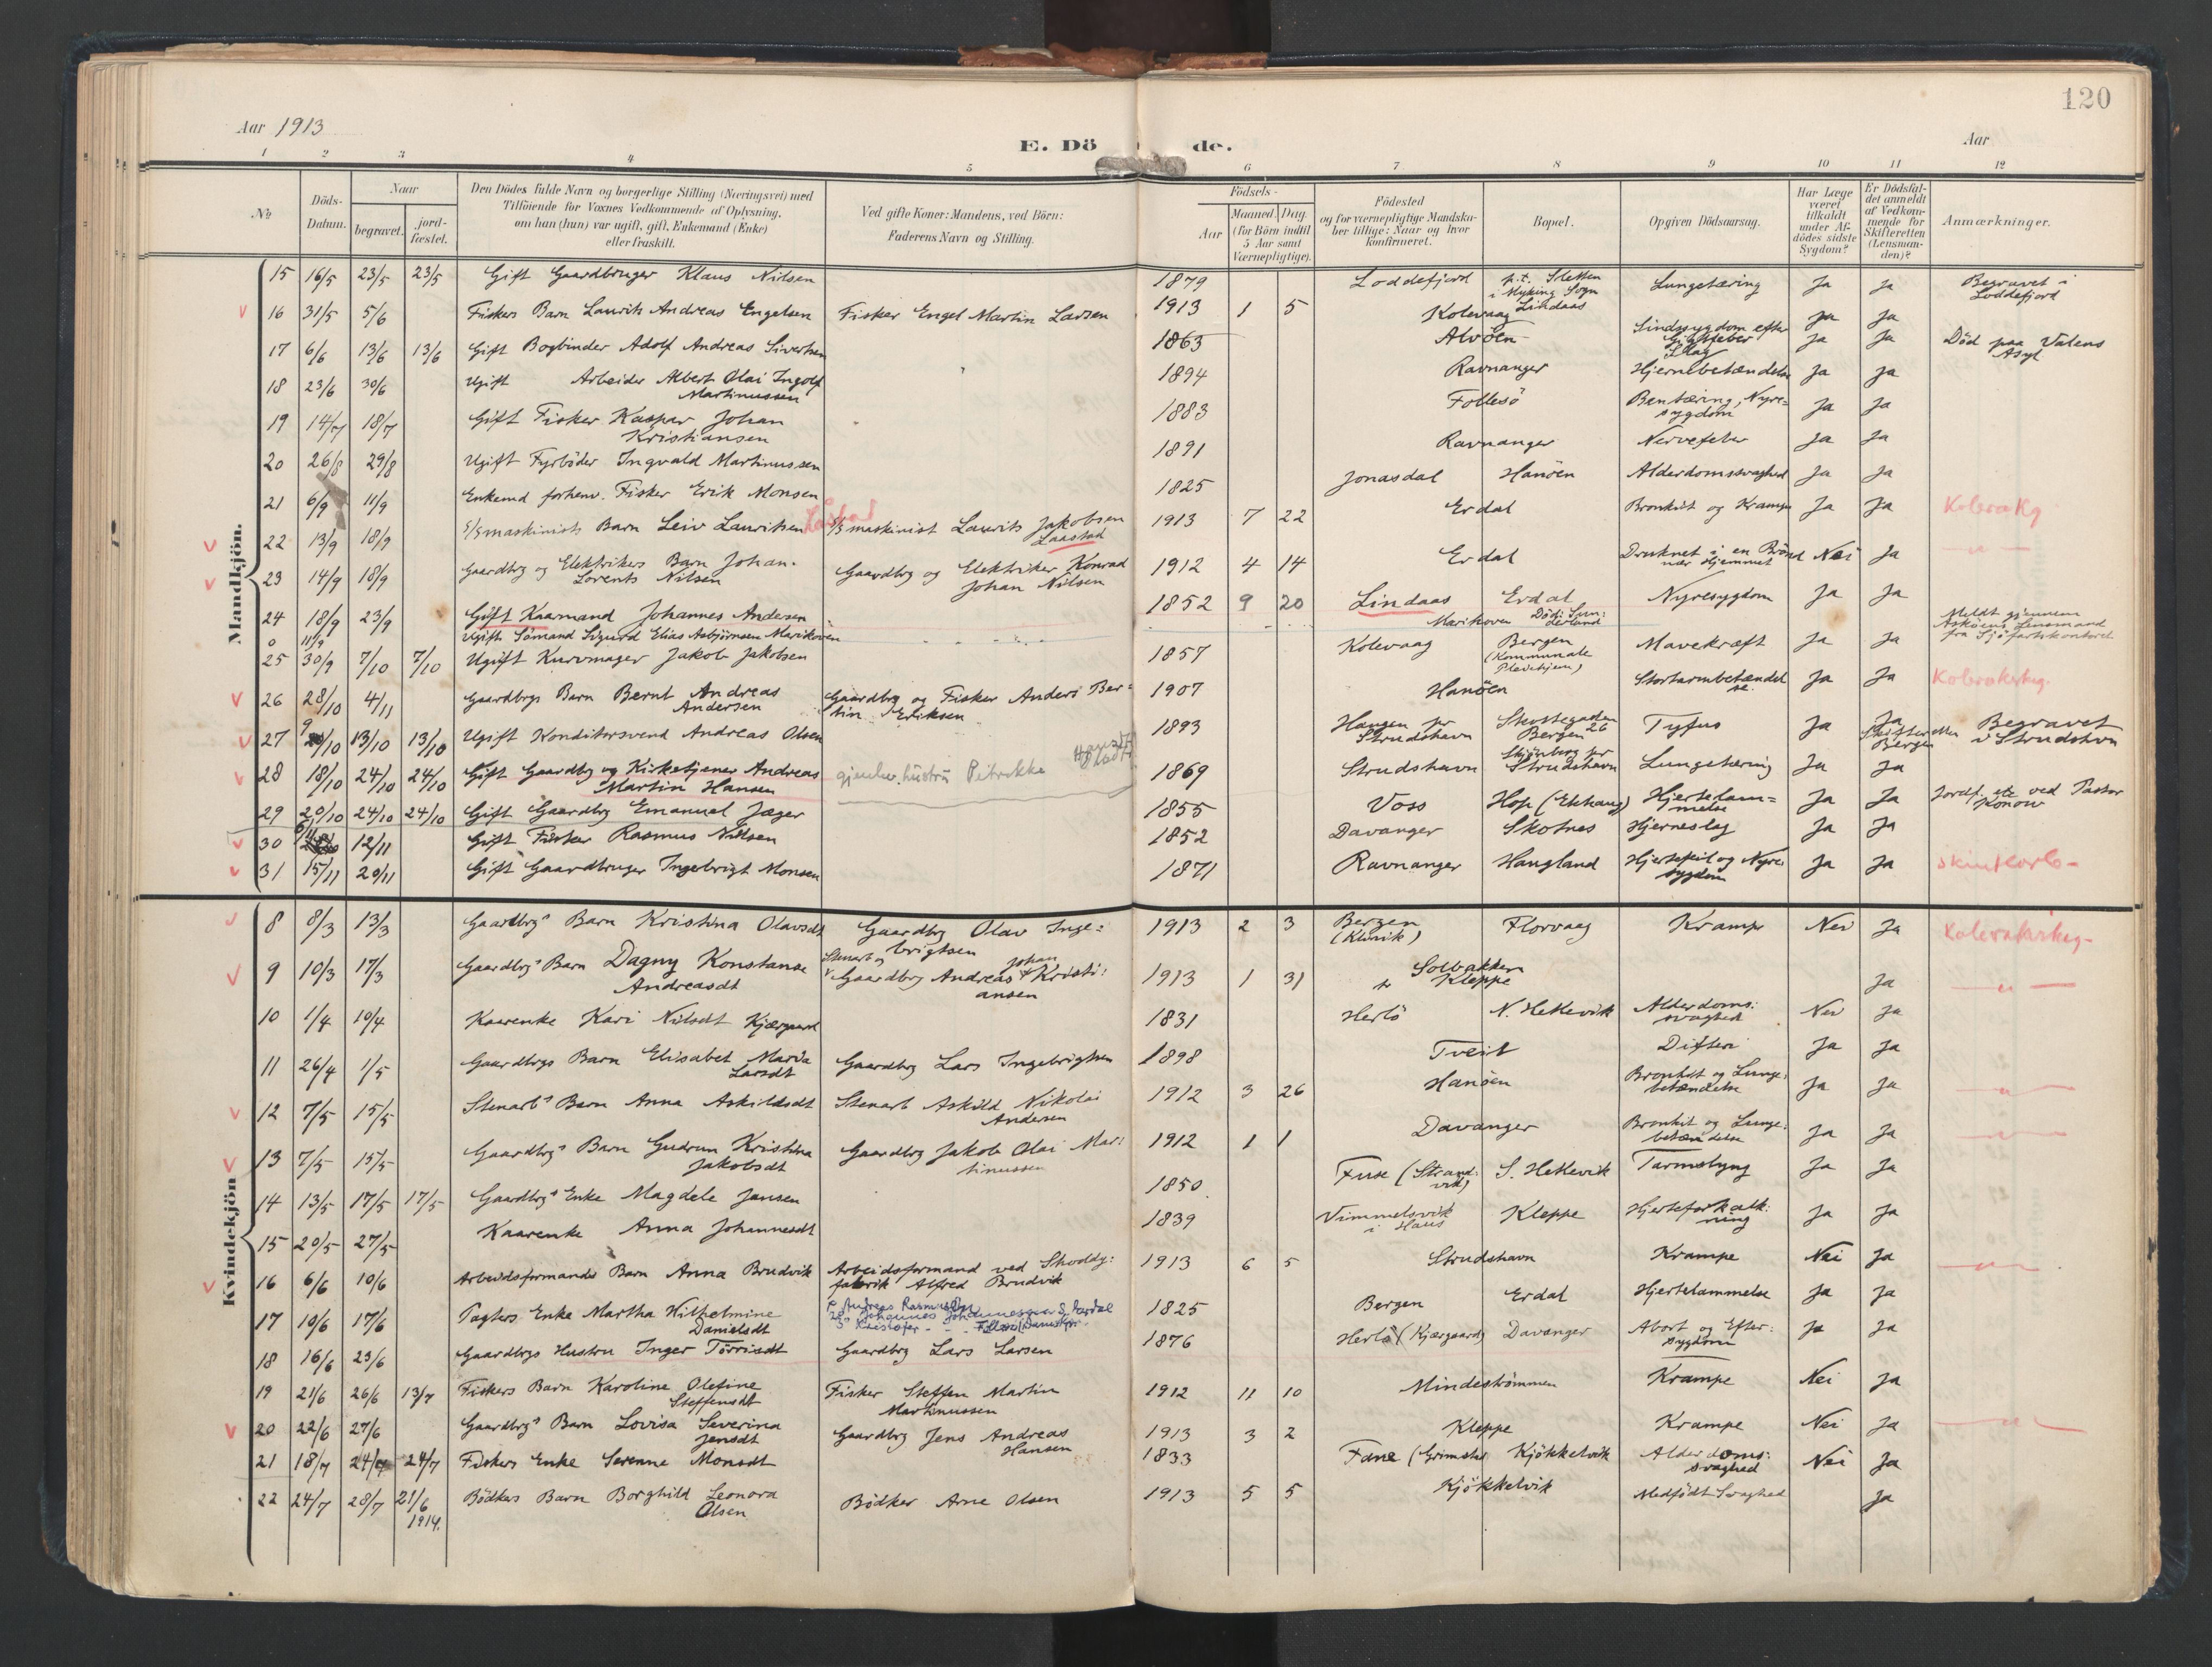 120
Aar 1913
E. Dö de.
Aar
1 2 3 4 5 6 7 8 9 10 11 12
No
Döds-Datum.
Naar
begravet.
jord-fæstet.
Den Dödes fulde Navn og borgerlige Stilling (Næringsvei) med
Tilföiende for Voxnes Vedkommende af Oplysning,
om han (hun) var ugift, gift, Enkemand (Enke)
eller fraskilt.
Ved gifte Koner: Mandens, ved Börn:
Faderens Navn og Stilling.
Födsels-
Aar
Maaned. Dag.
(for Börn indtil
5 Aar samt
Værnepligtige).
Födested
og for værnepligtige Mandska-
ber tillige: Naar og hvor
konfirmeret.
Bopæl.
Opgiven Dödsaarsag.
Har Læge
været
tilkaldt
under Af-
dödes sidste
Sygdom?
Er Dödsfal-
det anmeldt
af Vedkom-
mende for
Skifteretten
(Lensman-
den)?
Anmærkninger.
Mandkjön.
15 16/5 23/5 23/5 Gift Gaardbruger Klaus Nilsen 1879 Loddefjord p.t. Sletten i Myking Sogn Lindaas Lungetæring Ja Ja Begravet i Loddefjord
16 31/5 5/6 Fiskers Barn Laurits Andreas Engelsen Fisker Engel Martin Larsen 1913 1 5 Kolevaag Ja Ja
17 6/6 13/6 13/6 Gift Bogbinder Adolf Andreas Sivertsen 1863 Alvöen Sindssygdom efter Gigtfeber Slag Ja Ja Död paa Valens Asyl
18 23/6 30/6 Ugift Arbeider Albert Olai Ingolf Martinussen 1894 Ravnanger Hjernebetændelse Ja Ja
19 14/7 18/7 Gift Fisker Kaspar Johan Kristiansen 1883 Follesö Bentæring, Nyresygdom Ja Ja
20 26/8 29/8 Ugift Fyrböder Ingvald Martinussen 1891 Ravnanger Nervefeber Ja Ja
21 6/9 11/9 Enkemd forhenv. Fisker Erik Monsen 1825 Jonasdal Hanöen Alderdomssvaghed Ja Ja
22 13/9 18/9 S/S maskinists Barn Leiv Lauritsen Laastad S/S maskinist Laurits Jakobsen Laastad 1913 7 22 Erdal Bronkit og Krampe Ja Ja Kolevakg
23 14/9 18/9 Gaardbrg og Elektrikers Barn Johan Lorents Nilsen Gaardbrg og Elektriker Konrad Johan Nilsen 1912 4 14 Erdal Druknet i en Brönd nær Hjemmet Nei Ja — " —
24 18/9 23/9 Gift Kaarmand Johannes Andersen 1852 9 20 Lindaas Erdal Nyresygdom Ja Ja
0 11/9 Ugift Sömand Sigurd Elias Asbjörnsen Marikoven Marikoven Död i Sunderland Meldt gjennem Asköens Lensmand fra Sjöfartskontoret
25 30/9 7/10 7/10 Ugift Kurvmager Jakob Jakobsen 1857 Kolevaag Bergen (Kommunale Pleiehjem) Mavekræft Ja Ja
26 28/10 4/11 Gaardbrgs Barn Bernt Andreas Andersen Gaardbrg og Fisker Anders Bertin Eriksen 1907 Hanöen Stortarmbetændelse Ja Ja Kolevakirkeg.
27 9/10 13/10 13/10 Ugift Konditorsvend Andreas Olsen 1893 Haugen pr Strudshavn Skottegaden 26 Bergen Tyfus Ja Ja Skifteretten Bergen Begravet i Strudshvn
28 18/10 24/10 24/10 Gift Gaardbrg og Kirketjener Andreas Martin Hansen gjenlev. hustru Petrokke 1869 Strudshavn Skjönberg pr Strudshavn Lungetæring Ja Ja
29 20/10 24/10 24/10 Gift Gaardbrg Emanuel Jæger 1855 Voss Hop (Ekhaug) Hjertelammelse Ja Ja Jordf. etc ved Pastor Konow
30 6/11 12/11 Gift Fisker Rasmus Nilsen 1852 Davanger Skotnes Hjerneslag Ja Ja
31 15/11 20/11 Gift Gaardbruger Ingebrigt Monsen 1871 Ravnanger Haugland Hjertefeil og Nyresygdom Ja Ja
Kvindekjön
8 8/3 13/3 Gaardbrgs Barn Kristina Olavsdt Gaardbrg Olav Ingebrigtsen 1913 2 3 Bergen (Klinik) Florvaag Krampe Nei Ja Kolevakirkeg-
9 10/3 17/3 Gaardbrgs Barn Dagny Konstanse Andreasdt Stenarb og Gaardbrg Andreas Johan Kristiansen 1913 1 31 Solbakken Kleppe Ja — " —
10 1/4 10/4 Kaarenke Kari Nilsdt Kjærgaard 1831 Herlö N. Hetlevik Alderdomssvaghed Nei Ja
11 26/4 1/5 Gaardbrgs Barn Elisabet Maria Larsdt Gaardbrg Lars Ingebrigtsen 1898 Tveit Difteri Ja Ja
12 7/5 15/5 Stenarbs Barn Anna Askildsdt Stenarb Askild Nikolai Andersen 1912 3 26 Hanöen Bronkit og Lungebetændelse Ja Ja — " —
13 7/5 15/5 Gaardbrgs Barn Gudrun Kristina Jakobsdt Gaardbrg Jakob Olai Martinussen 1912 1 1 Davanger Bronkit og Lungebetændelse Ja Ja — " —
14 13/5 17/5 17/5 Gaardbrgs Enke Magdele Jansen 1850 Fuse (Strandvik) S. Hetlevik Tarmslyng Ja Ja
15 20/5 27/5 Kaarenke Anna Johannesdt 1839 Vimmelsvik i Haus Kleppe Hjerteforkalkning Ja Ja
16 6/6 10/6 Arbeidsformands Barn Anna Brudvik Arbeidsformand ved Shoddyfabrik Alfred Brudvik 1913 6 5 Strudshavn Krampe Nei Ja — " —
17 10/6 17/6 Tagters Enke Martha Wilhelmine Danielsdt 1825 Bergen Erdal Hjertelammelse Ja Ja
18 16/6 23/6 Gaardbrgs Hustru Inger Törrisdt Gaardbrg Lars Larsen 1876 Herlö (Kjærgaard) Davanger Abort og Eftersygdom Ja Ja
19 21/6 26/6 13/7 Fiskers Barn Karoline Olefine Steffensdt Fisker Steffen Martin Martinussen 1912 11 10 Mindeströmmen Krampe Nei Ja
20 22/6 27/6 Gaardbrgs Barn Lovisa Severina Jensdt Gaardbrg Jens Andreas Hansen 1913 3 2 Kleppe Krampe Nei Ja — " —
21 18/7 24/7 24/7 Fiskers Enke Serenne Monsdt 1833 Fane (Grimstad Kjökkelvik Alderdomssvaghed Nei Ja
22 24/7 28/7 21/6 1914. Bödkers Barn Borghild Leonora Olsen Bödker Arne Olsen 1913 5 5 Kjökkelvik Medfödt Svaghed Ja